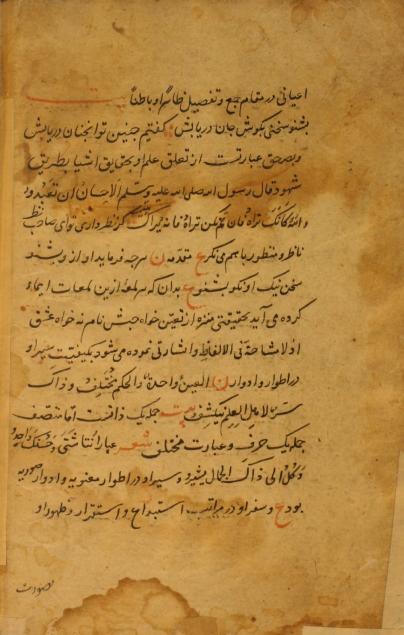 اعیانی در مقام جمع و تفصیل ظاهرا و باطنا بیت
بشنو سخنی بگوش جان دریابش گفتیم چنین تو انچنان دریابش
و بصر حق عبارتست از تعلق علم او بحقایق اشیا بطریق
شهود قال رسول الله صلی الله علیه وسلم الاحسان ان تعبدوا
الله کانک تراه فان لم تکن تراه فانه یراک کر نظر داری توای صاحب نظر
ناظر و منظور با هم می نکر ع مقدمه ن هرچه فرماید او از و بشنو
سخن نیک او نکو بشنو ع بدان که هر لمعه ازین لمعات ایماء
کرده می آید بحقیقتی منزه از تعین خواه حبش نام نه خواه عشق
اذ لا مشاحة فی الالفاظ و اشارتی نموده می شود بکیفیت سیر او
در اطوار و ادوار ن العین واحدة والحکم مختلف و ذاک
سر لاهل العلم ینکشف بیت جمله یک ذاتست اما متصف
جمله یک حرف و عبارت مختلف شعر عباراتنا شتی و حسنک واحد
و کل الی ذاک الجمال یشیر و سیر او در اطوار معنویه و ادوار صوریه
بود ع و سفر او در مراتب استیداع و استقرار و ظهور او
بصورت